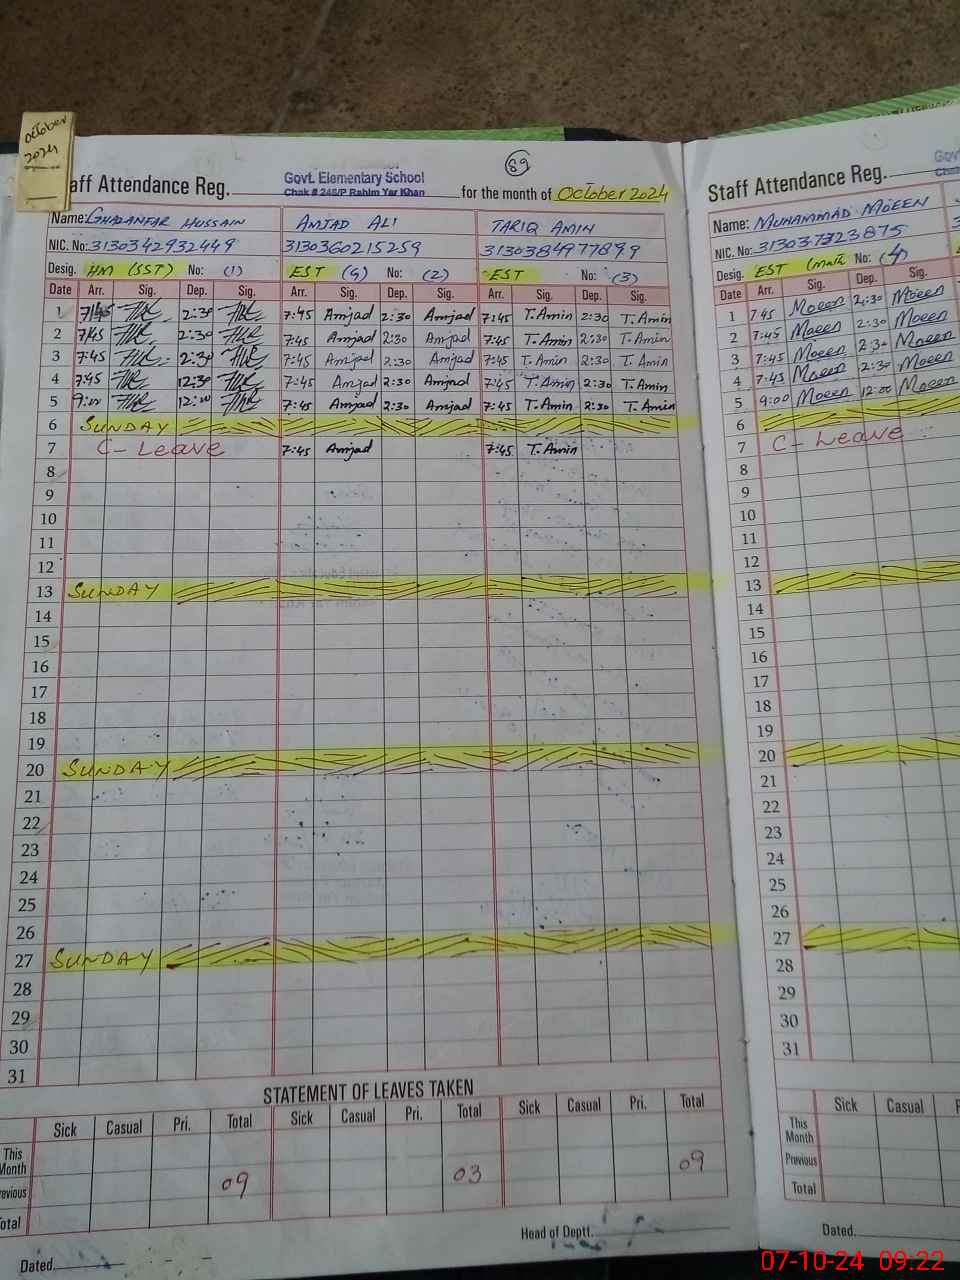 October
2024
89
Govt. Elementary School
Chak # 246/P Rahim Yar Khan
aff Attendance Reg. for the month of October 2024
Name: GHAZANFAR HUSSAIN AMJAD ALI TARIQ AMIN
NIC. No: 3130342932449 3130360215259 3130384977899
Desig. HM (SST) No: (1) EST (G) No: (2) EST No: (3)
Date Arr. Sig. Dep. Sig. Arr. Sig. Dep. Sig. Arr. Sig. Dep. Sig.
1 7:45 2:30 7:45 Amjad 2:30 Amjad 7:45 T.Amin 2:30 T.Amin
2 7:45 2:30 7:45 Amjad 2:30 Amjad 7:45 T.Amin 2:30 T.Amin
3 7:45 2:30 7:45 Amjad 2:30 Amjad 7:45 T.Amin 2:30 T.Amin
4 7:45 12:30 7:45 Amjad 2:30 Amjad 7:45 T.Amin 2:30 T.Amin
5 9:00 12:00 7:45 Amjad 2:30 Amjad 7:45 T.Amin 2:30 T.Amin
6 SUNDAY
7 C-Leave 7:45 Amjad 7:45 T.Amin
8
9
10
11
12
13 SUNDAY
14
15
16
17
18
19
20 SUNDAY
21
22
23
24
25
26
27 SUNDAY
28
29
30
31
STATEMENT OF LEAVES TAKEN
Sick Casual Pri. Total Sick Casual Pri. Total Sick Casual Pri. Total
This
Month
revious 09 03 09
otal
Head of Deptt.
Dated
Staff Attendance Reg.
Name: MUHAMMAD MOEEN
NIC. No: 313037323875
Desig. EST (Math No: (4)
Date Arr. Sig. Dep. Sig.
1 7:45 Moeen 2:30 Moeen
2 7:45 Moeen 2:30 Moeen
3 7:45 Moeen 2:30 Moeen
4 7:45 Moeen 2:30 Moeen
5 9:00 Moeen 12:00 Moeen
6
7 C-Leave
8
9
10
11
12
13
14
15
16
17
18
19
20
21
22
23
24
25
26
27
28
29
30
31
Sick Casual
This
Month
Previous
Total
Dated
07-10-24 09:22